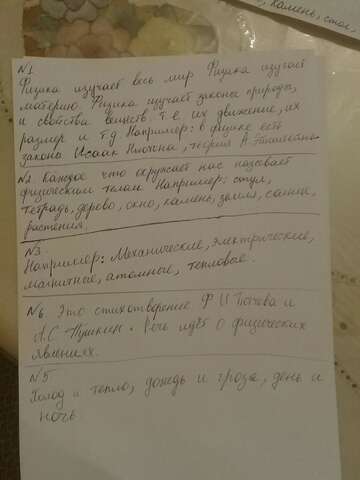 камень, стол,
N1
Физика изучает весь мир Физика изучает
материю. Физика изучает законы природы,
и свойства веществ. т.е их движение, их
размер и т.д Например: в физике есть
закона Исаак Ньютна, теория А.
N2. Каждое что окружает нас называет
физическим телам Например: стул,
тетрадь, дерево, окно, камень, земля, солнце,
растения.
N3.
Например: Механические, электрические,
магнитные, атомные, тепловые.
N6. Это стихотворение Ф И Тючева и
А.С Пушкин. Речь идёт о физических
явлениях.
N5.
Холод и тепло, дождь и гроза, день и
ночь